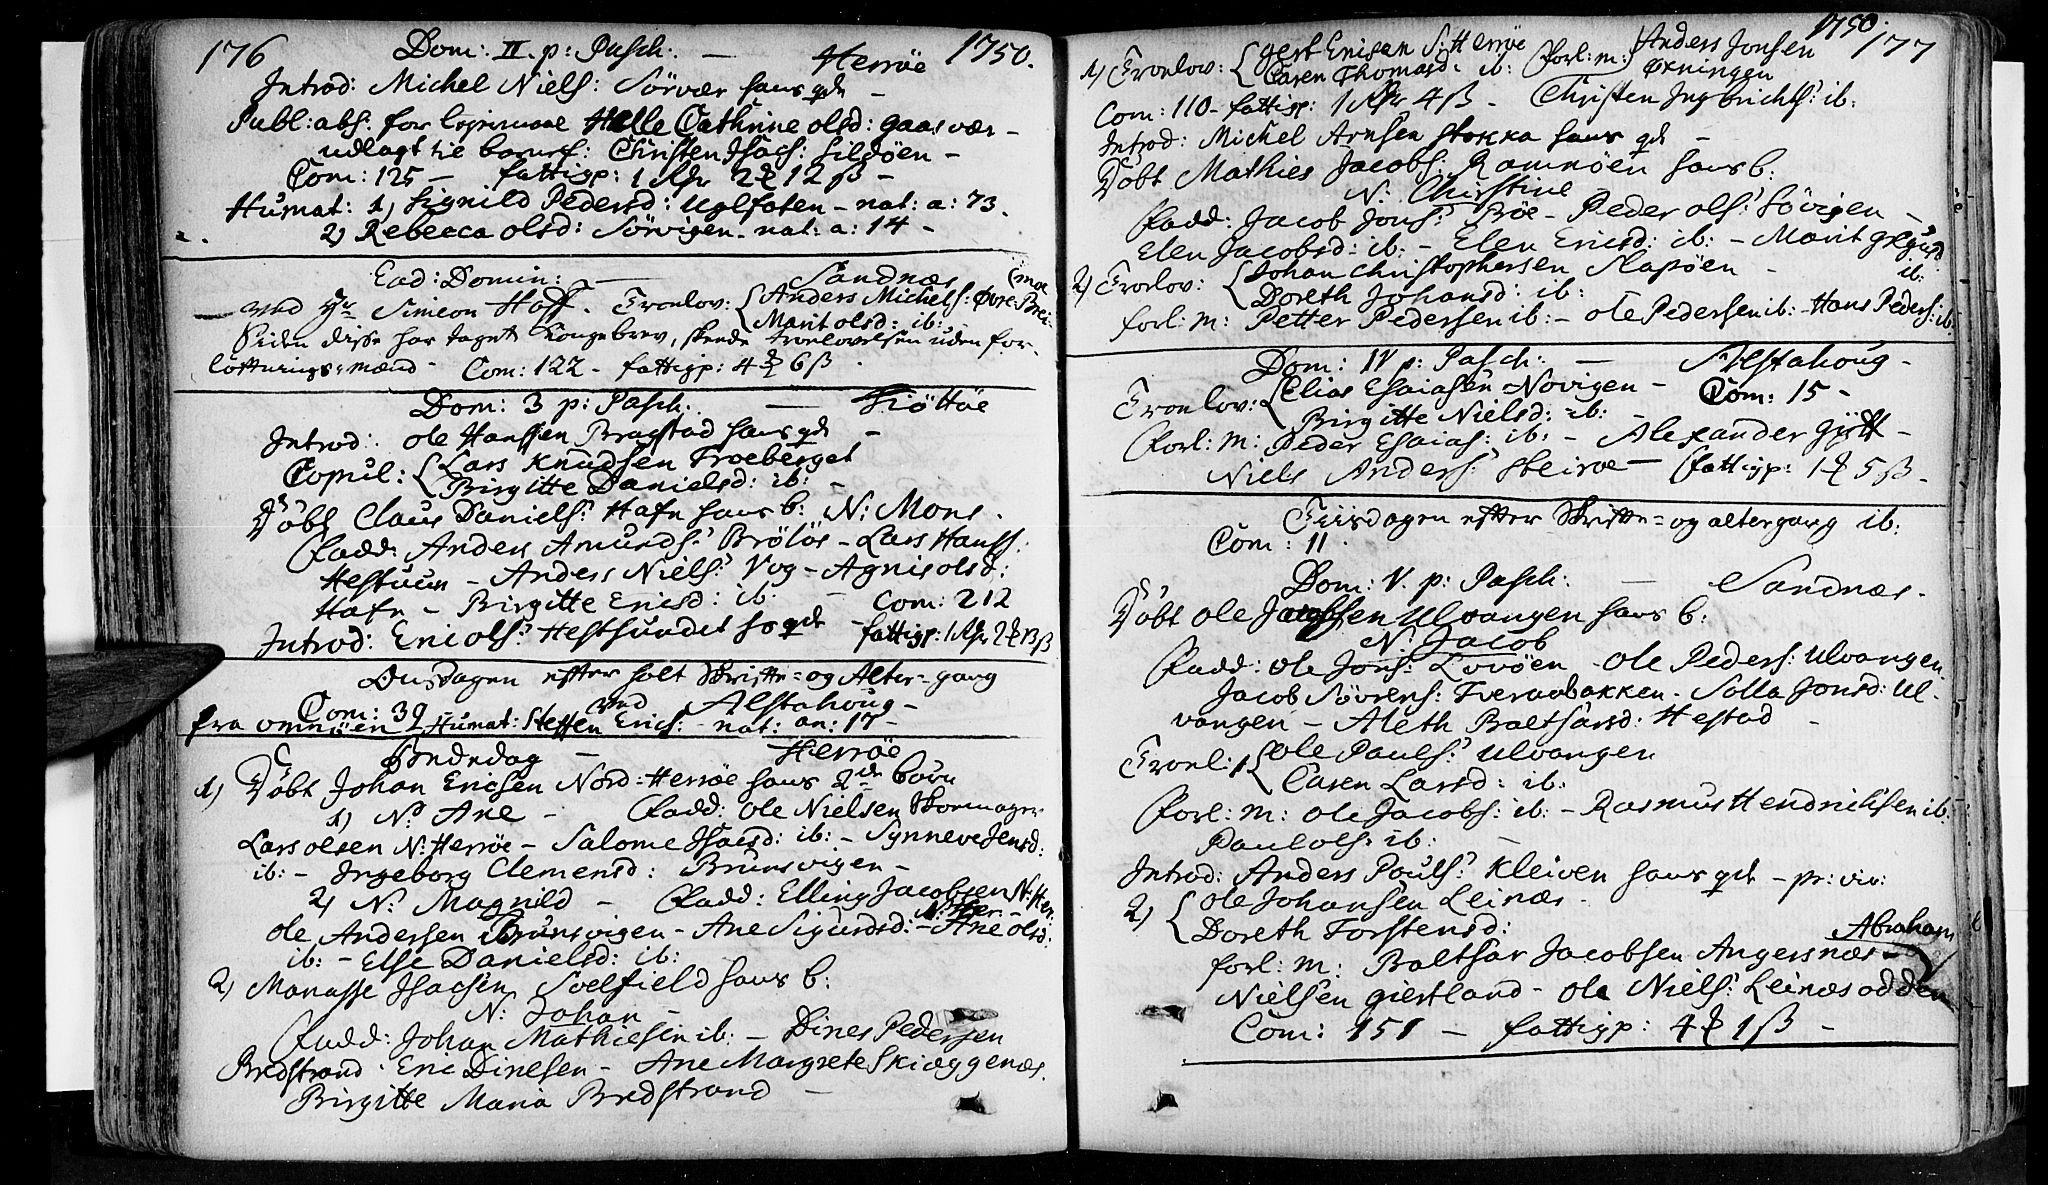 176 Dom: II. p: Pasch: — Herröe 1750.
Introd: Michel Niels: Sörvær hans qde —
Publ: abs: for lejermaal Helle Cathrine olsd: gaasvær —
udlagt til barnef: Christen Isacs: Sildöen —
Com: 125 — fattigp: 1 Rdr 2 ℔ 12 ß —
Humat: 1) Signild Pedersd: Uglfoten — nat: a: 73.
2) Rebecca olsd: Sörvigen — nat: a: 14 —
Ead: Domin: — Sandnæs
ved Hr Simeon Hoff. Troelov: {Anders Michels: Övre-Brei-
Marit olsd: ib: —
Siden disse har taget Kongebrev, skeede troelovelsen uden for-
løftnings-mænd — Com: 122 — fattigp: 4 ℔ 6 ß.
Dom: 3 p: Pasch: — Tiöttöe
Introd: ole Hanssen Bragstad hans qde —
Copul: {Lars Knudsen Troeberget
Birgitte Danielsd: ib: —
Döbt Claus Daniels: Hafn hans b: N: Mons.
Fadd: Anders Amunds: Brölös — Lars Hanss:
Hestuun — Anders Niels: Vog — Agnis olsd:
Hafn — Birgitte Ericsd: ib: — Com: 212
Introd: Eric ols: Hestsundet hs qde — fattigp: 1 Rdr 2 ℔ 13 ß
Onsdagen efter holt Skrifte- og Alter-gang
Com: 39 — ved Alstahoug —
fra omnöen Humat: Steffen Erics: — nat: an: 17 —
Bededag — Herröe
1) Döbt Johan Ericsen Nord-Herröe hans 2de börn
1) N: Ane — Fadd: ole Nielsen Skoemager
Lars olsen N: Herröe — Salome Isacsd: ib: — Synneve Jensd:
ib: — Ingeborg Clemensd: Brunsvigen —
2) N: Magnild — Fadd: Elling Jacobsen N: Her:
ole Andersen Brunsvigen — Ane Sigurdsd: N: Her — Ane olsd:
ib: — Else Danielsd: ib:
2) Manasse Isacsen Soelfield hans b:
N: Johan —
Fadd: Johan Mathiesen ib: — Dines Pedersen
Bredstrand. Eric Dinesen — Ane Margrete Skiæggenæs.
Birgitte Maria Bredstrand —
1750. 177
1) Troelov: {Gert Ericsen S: Herröe Forl: m: {Anders Jonsen
Caren Thomasd: ib: Öxningen
Com: 110 — fattigp: 1 Rdr 4 ß — Christen Ingbrichts: ib:
Introd: Michel Arnsen Stokka hans qde —
Döbt Mathies Jacobs: Ramnöen hans b:
N: Christine
Fadd: Jacob Jons: Bröe — Peder ols: Sövigen —
Elen Jacobsd: ib: — Elen Ericsd: ib: — Marit
ib:
2) Troelov: {Johan Christophersen Slapöen —
Doreth Johansd: ib:
forl: m: Petter Pedersen ib: — ole Pedersen ib: — Hans Peders: ib:
Dom: IV p: Pasch: — Alstahoug —
Troelov: {Elias Esaiasen Novigen — Com: 15 —
Birgitte Nielsd: ib:
Forl: m: Peder Esaias: ib: — Alexander —
Niels Anders: Steiroe — fattigp: 1 ℔ 5 ß —
Tiirsdagen efter Skrifte- og altergang ib:
Com: 11.
Dom: V. p: Pasch: — Sandnæs.
Döbt ole Jacobsen Ulvangen hans b:
N: Jacob
Fadd: ole Jons: Lovöen — ole Peders: Ulvangen
Jacob Sörens: Tveraabakken — Solla Jonsd: Ul-
vangen — Aleth Baltsarsd: Hestad —
Troel: 1 {ole Pauls: Ulvangen
Caren Larsd: ib:
Forl: m: ole Jacobs: ib: — Rasmus Hendrichsen ib:
Paul ols: ib: —
Introd: Anders Pouls: Kleiven hans qde — pr: viv:
2) {ole Johansen Leinæs —
Doreth Torstensd: Abraham
forl: m: Baltsar Jacobsen Angersnæs —
Nielsen giestland — ole Niels: Leinæsodden
Com: 151 — fattigp: 4 ℔ 1 ß —